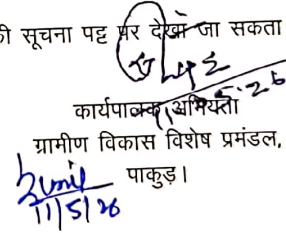 की सूचना पट्ट पर देखा जा सकता
कार्यपालक अभियंता
11.5.26
ग्रामीण विकास विशेष प्रमंडल,
पाकुड़।
11/5/26